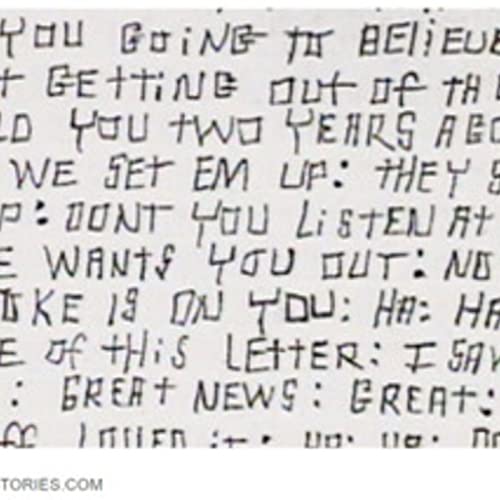 YOU GOiNG TO BEliEVE
GEttiNG OUt OF tH
YOU tWO YEARS AGO
WE SEt EM UP: tHEY S
P: DONT YOU LiStEN At
E WANtS YOU OUt: NO
OKE IS ON YOU: HA: HA
E OF tHiS LEttER: I SAW
: GREAt NEWS: GREAt:
LOVED it: HO: HO:
TORIES.COM